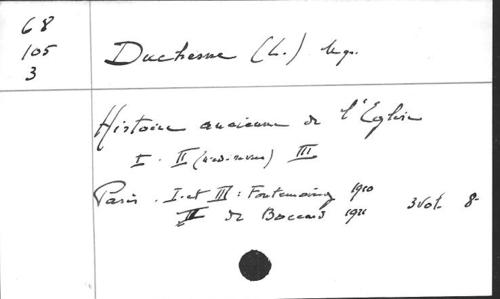 68
105
3
Duchesne (L.) Mgr.
Histoire ancienne de l'Eglise
I. II (        ) III
Paris. I. et III : Fontemoing 1910
II de Boccard 1911
3 vol. 8-